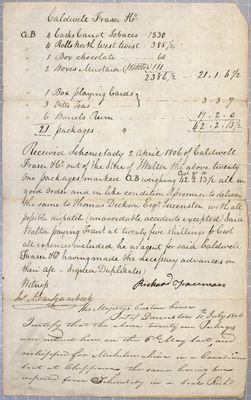 Caldwell Fraser & Co
CB 4 Casks Carrot Tobacco 1530
" 4 Rolls North West twist 385 1/2
" 1 Box Chocolate 60
" 2 Boxes Mustard 111
2086 1/2 21.1.6 1/2
" 1 Box playing Cards
" 3 Do Teas 3.3.7
" 6 Barrels Rum 17.2.0
21 packages 42.2.13 1/2
Received Schenectady 2 April 1806 of Caldwell
Fraser & Co out of the Store of Walton the above twenty
one packages marked CB weighing 42.2.13 1/2 all in
good order and in like condition I promise to deliver
the same to Thomas Dickson Esqr Queenston with all
possible dispatch (unavoidable accidents excepted) said
Walton paying Freight at twenty five shillings
all expences included, he as agent for said Caldwell
Fraser & Co having made the necessary advances on
their a/c — Signed Duplicates
Witness Richard Freeman
His Majesty's Custom house
Port of Queenston July 1806
I certify that the above twenty one Packages
were entered here on the 6th May last and
reshipped for Michilimackinac in a Canadian
boat at Chippawa, the same having been
imported from Schenectady in a boat